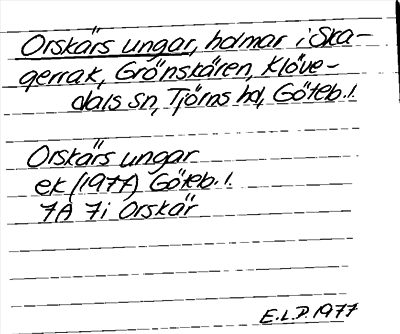 Orskärs ungar, holmar i Ska-
gerrak, Grönskären, Klöve-
dals sn, Tjörns hd, Göteb. l.
Orskärs ungar
ek (1977) Göteb. l.
7A 7i Orskär
E.L.P. 1977